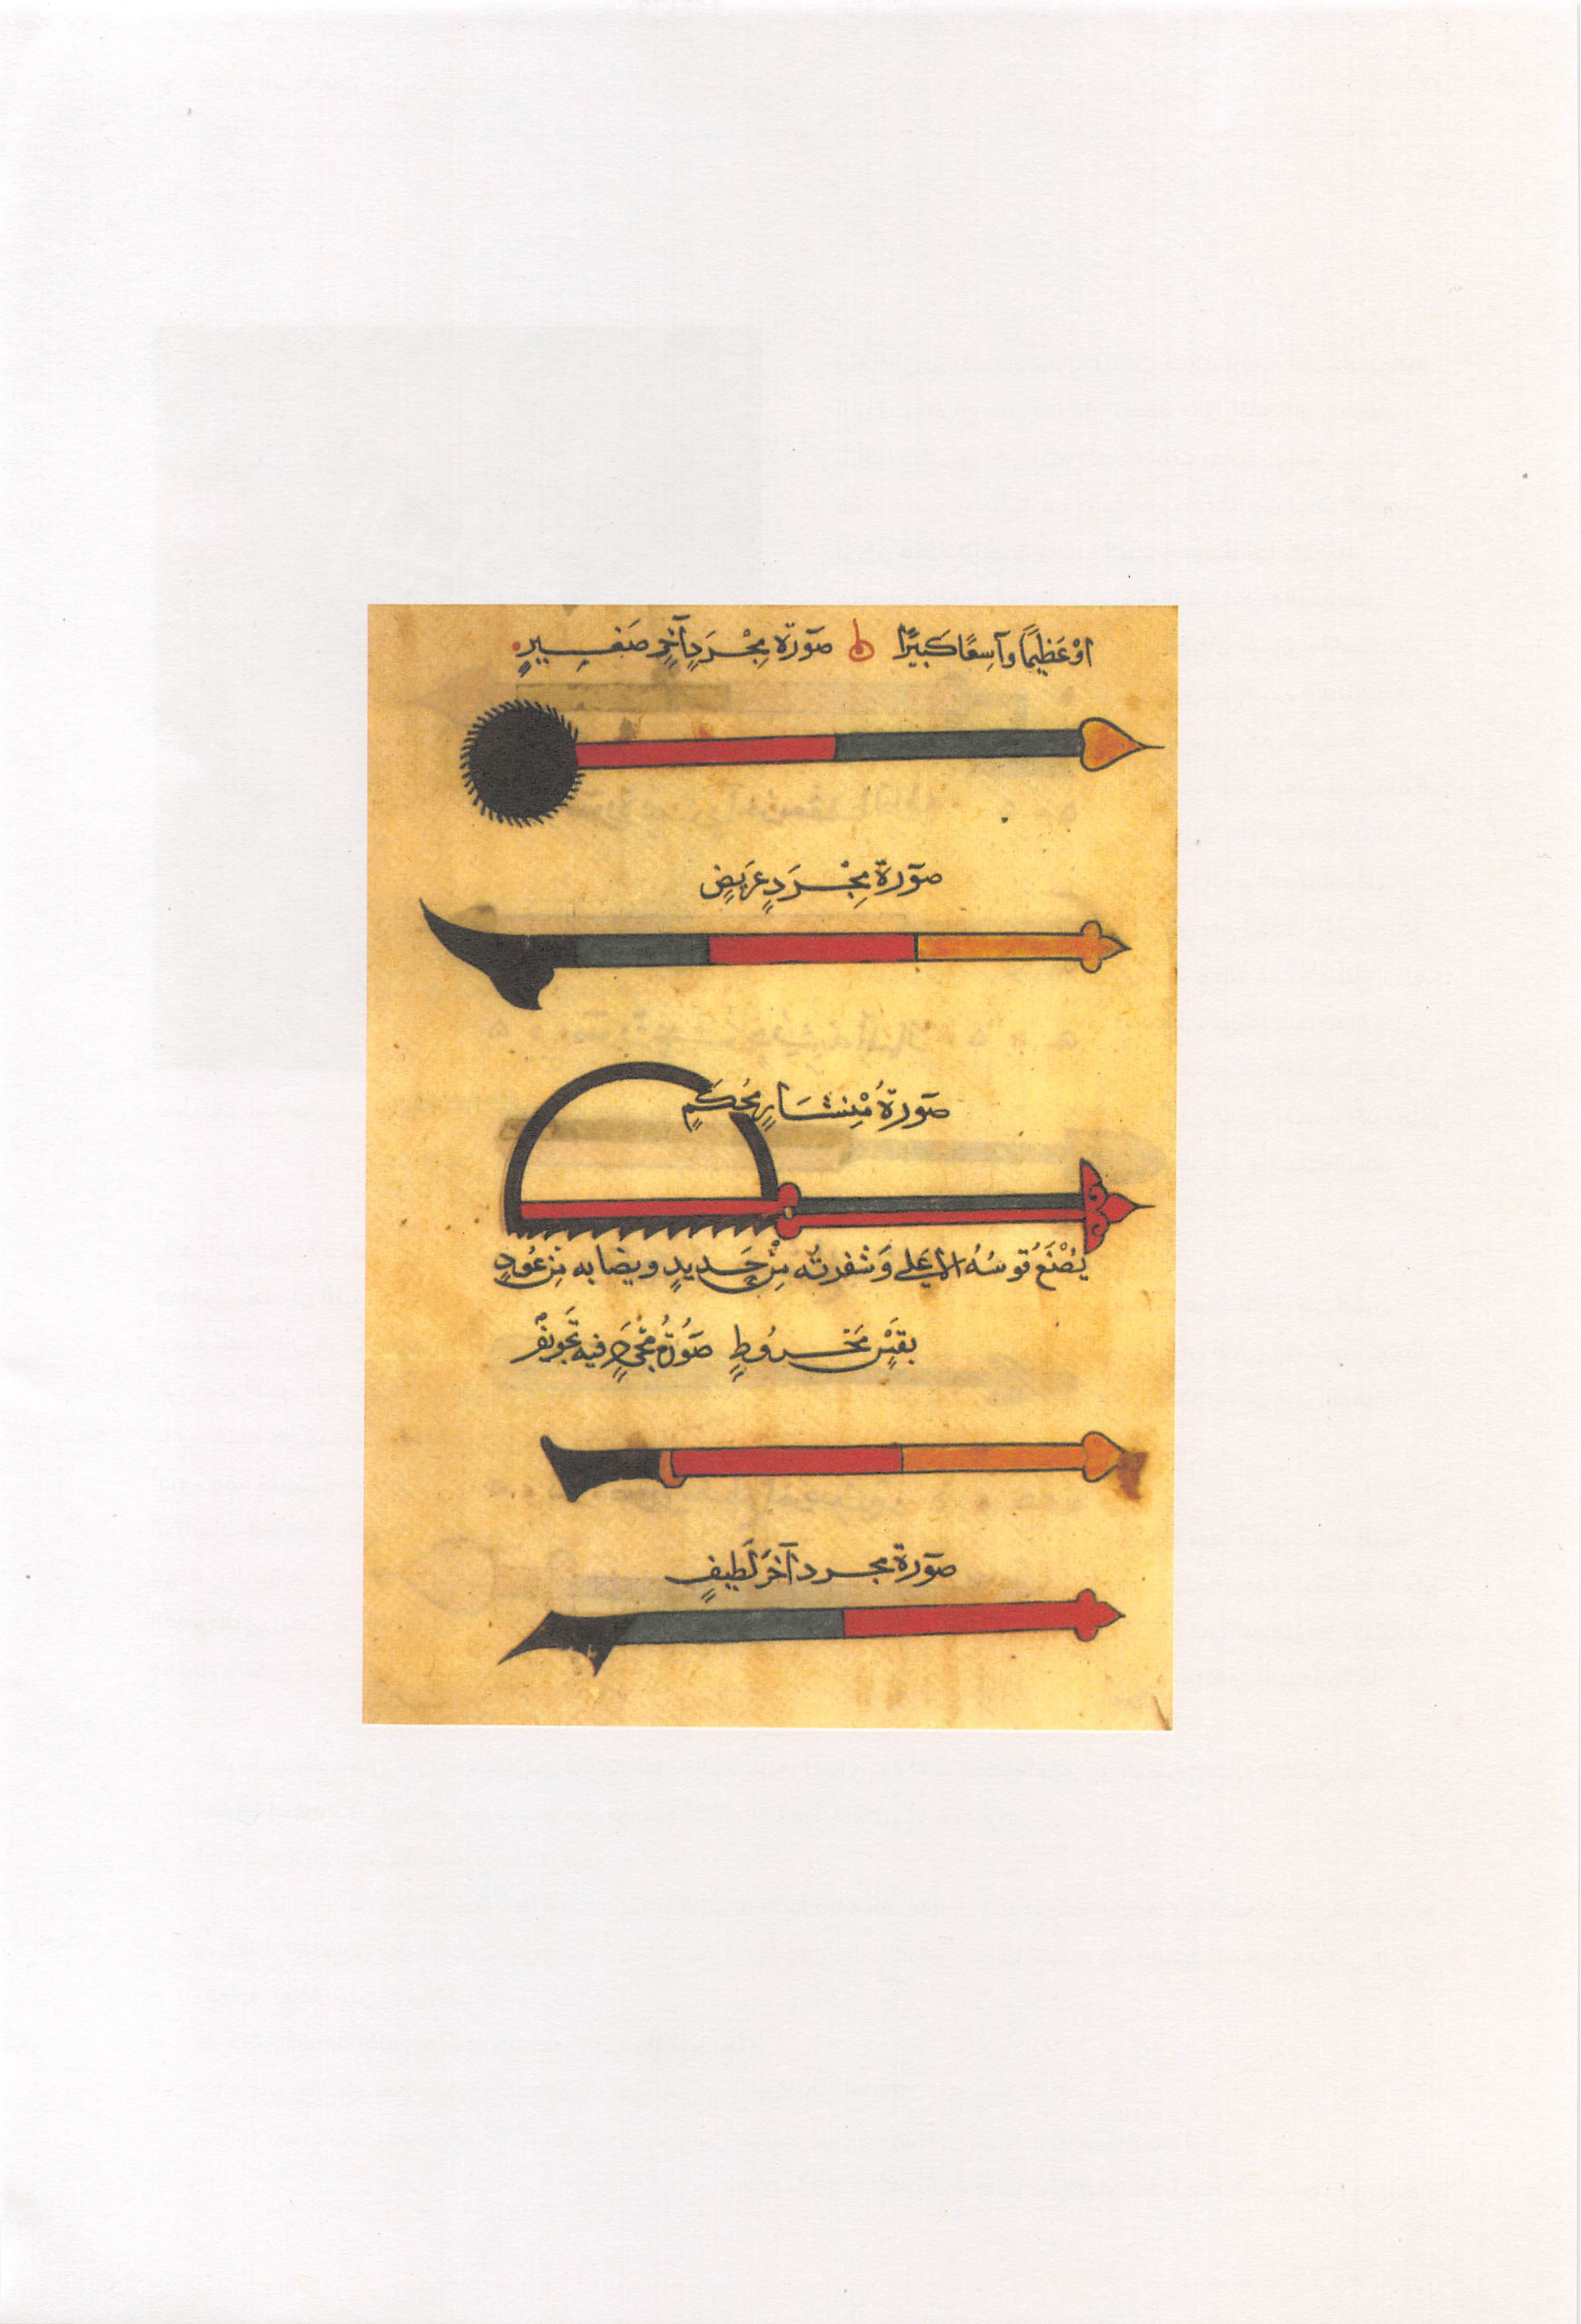 اوْ عَظِيمًا وآسِعًا كَبيرًا ه صَورَة مِجْرَدٍ آخَرٍ صَغِيرٍ
صَورَة مِجْرَدٍ عَرَيضٍ
صَورَةُ مِنْشَارٍ مُحْكَمٍ
يُصْنَعُ قوسُهُ الاعلى وَشفرته مِنْ حَديدٍ ونصابه مِن عُودِ
بقسٍ مَخْرُوطٍ صَورَةُ مِجْرَدٍ فيه تَجويفٌ
صَورَة مجرد آخَرَ لَطيفٍ